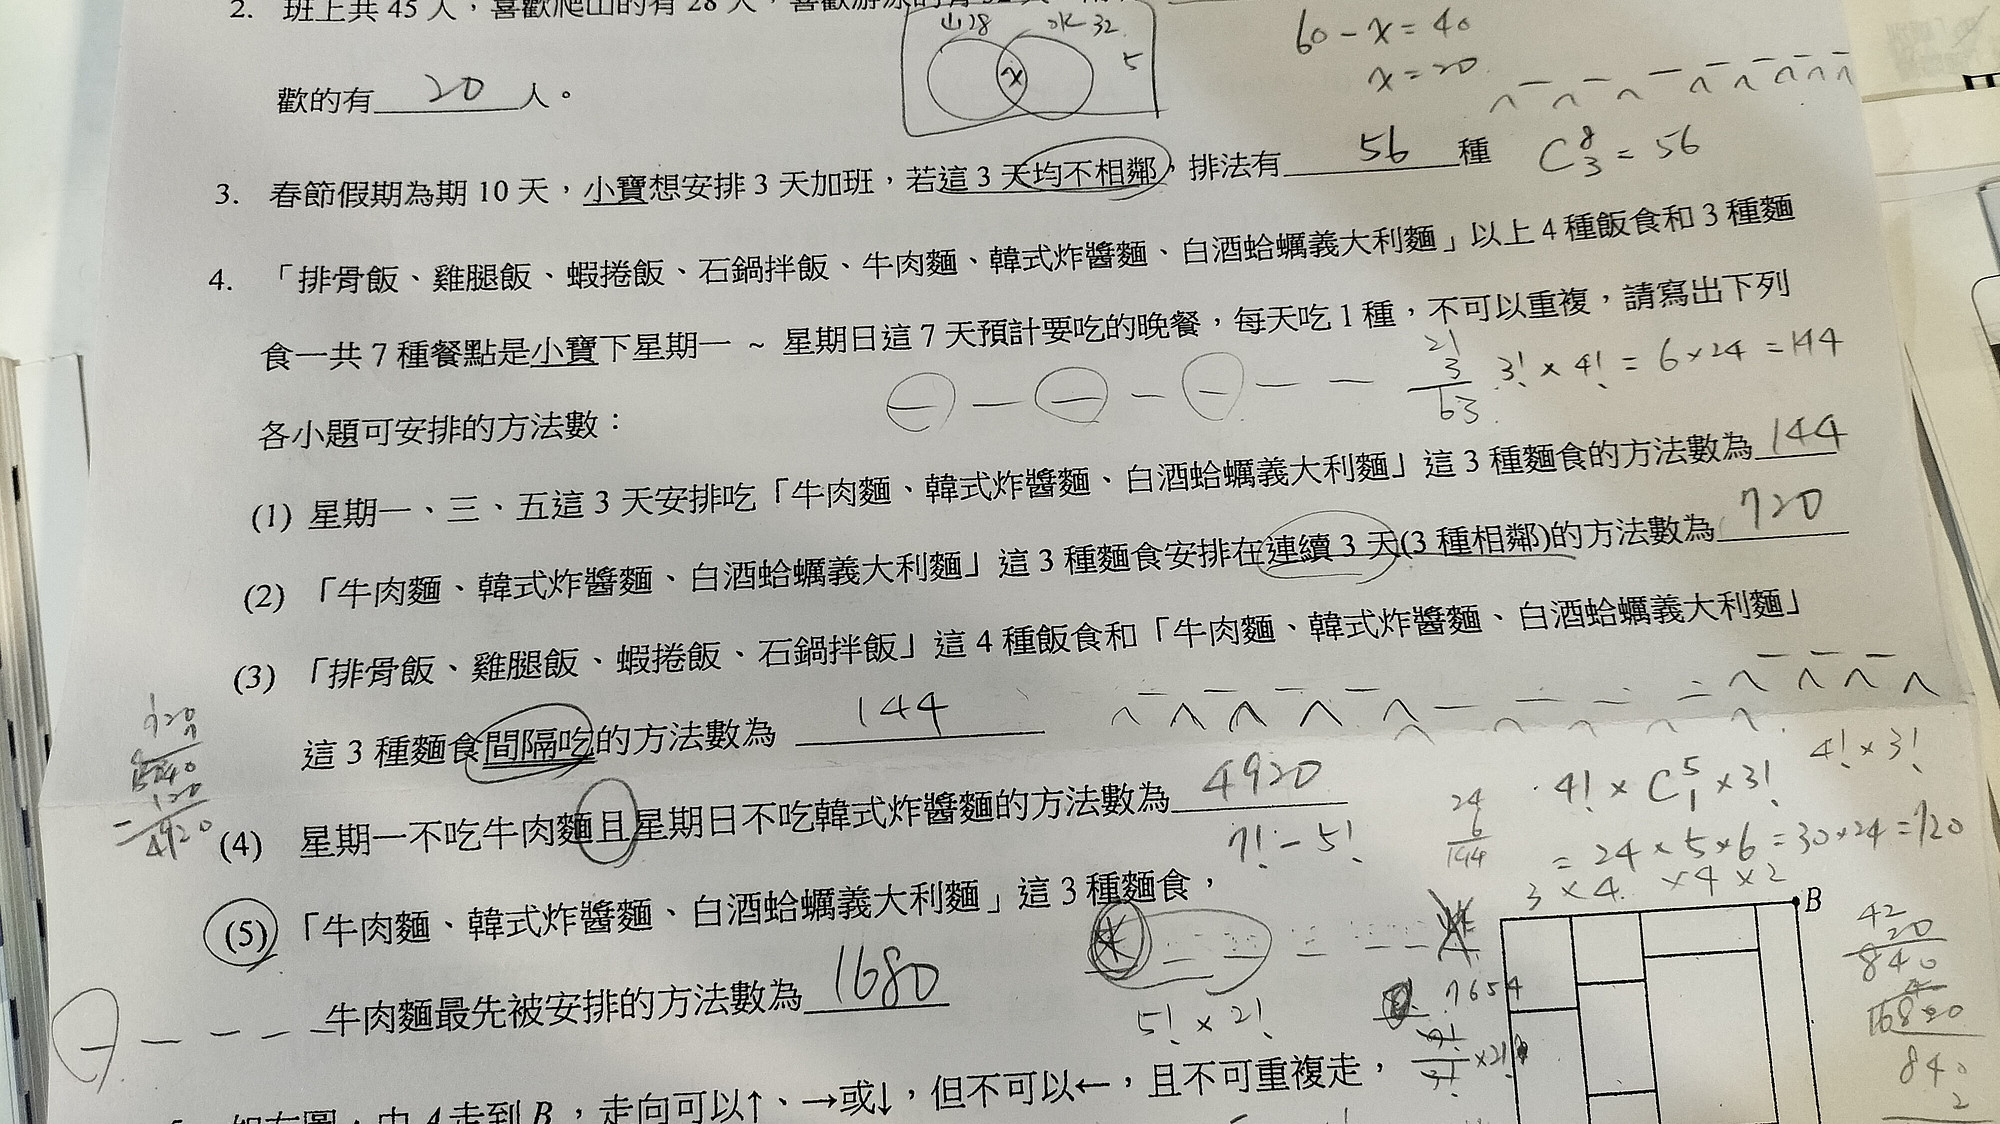 2. 班上共 45 人，喜歡爬山的有 28 人，喜歡游泳的有 32 人
山28 水32 5 x
60 - x = 40
x = 20
歡的有 20 人。
3. 春節假期為期 10 天，小寶想安排 3 天加班，若這 3 天均不相鄰，排法有 56 種
C⁸₃ = 56
4. 「排骨飯、雞腿飯、蝦捲飯、石鍋拌飯、牛肉麵、韓式炸醬麵、白酒蛤蠣義大利麵」以上 4 種飯食和 3 種麵
食一共 7 種餐點是小寶下星期一 ~ 星期日這 7 天預計要吃的晚餐，每天吃 1 種，不可以重複，請寫出下列
21 3 63
3! × 4! = 6 × 24 = 144
各小題可安排的方法數：
(1) 星期一、三、五這 3 天安排吃「牛肉麵、韓式炸醬麵、白酒蛤蠣義大利麵」這 3 種麵食的方法數為 144
(2) 「牛肉麵、韓式炸醬麵、白酒蛤蠣義大利麵」這 3 種麵食安排在連續 3 天(3 種相鄰)的方法數為 720
(3) 「排骨飯、雞腿飯、蝦捲飯、石鍋拌飯」這 4 種飯食和「牛肉麵、韓式炸醬麵、白酒蛤蠣義大利麵」
這 3 種麵食間隔吃的方法數為 144
4! × 3!
(4) 星期一不吃牛肉麵且星期日不吃韓式炸醬麵的方法數為 4920
7! - 5!
24 6 144
4! × C⁵₁ × 3!
= 24 × 5 × 6 = 30 × 24 = 720
720 7 5040 120
= 4920
3 × 4 × 4 × 2
B
(5) 「牛肉麵、韓式炸醬麵、白酒蛤蠣義大利麵」這 3 種麵食，
牛肉麵最先被安排的方法數為 1680
5! × 2!
7654
42 20
840
840
2
5. 如右圖，由 A 走到 B，走向可以↑、→或↓，但不可以←，且不可重複走，